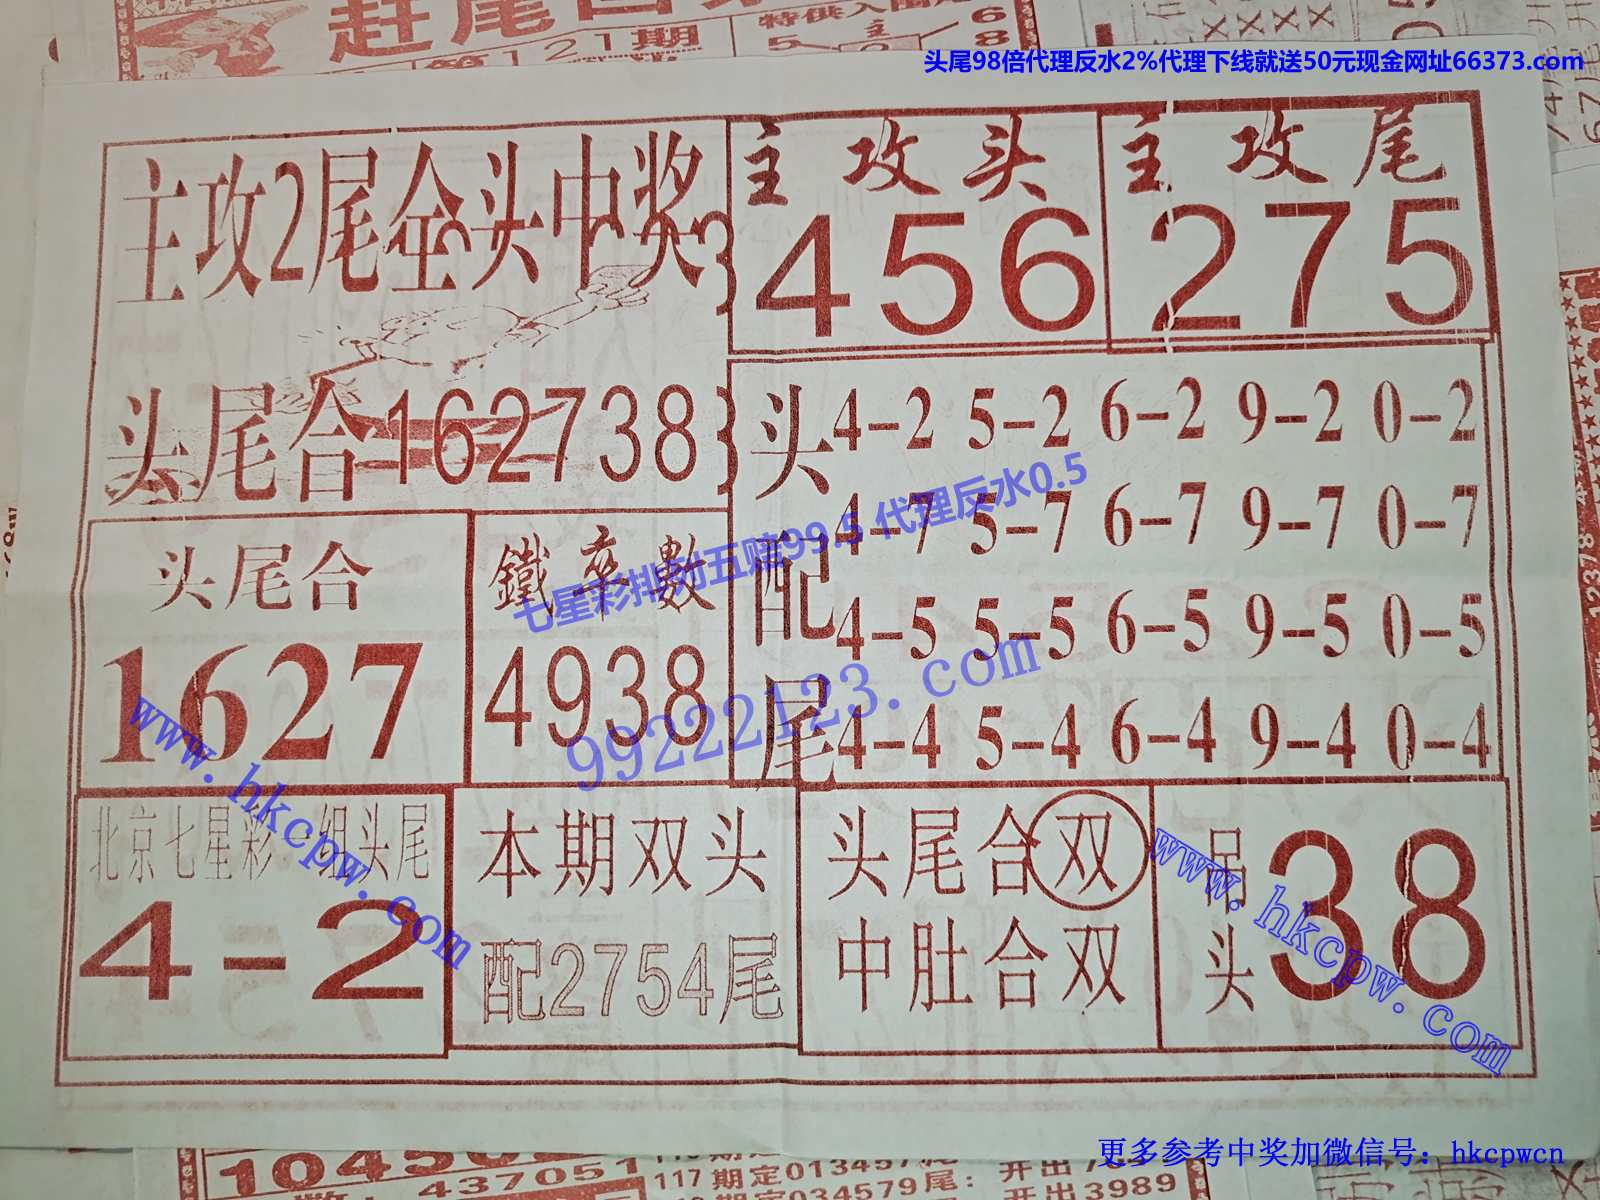 第121期
特供入围
头尾98倍代理反水2%代理下线就送50元现金网址66373.com
主攻2尾全头中奖
主攻头
456
主攻尾
275
头尾合162738
头配尾
4-2 5-2 6-2 9-2 0-2
4-7 5-7 6-7 9-7 0-7
4-5 5-5 6-5 9-5 0-5
4-4 5-4 6-4 9-4 0-4
头尾合
1627
鐵卒數
4938
七星彩排列五赔99.5 代理反水0.5
99222123.com
www.hkcpw.com
北京七星彩一组头尾
4-2
本期双头
配2754尾
头尾合双
中肚合双
吊头
38
www.hkcpw.com
437051
117期定013457
开出
定034579尾:
开出3989
更多参考中奖加微信号: hkcpwcn